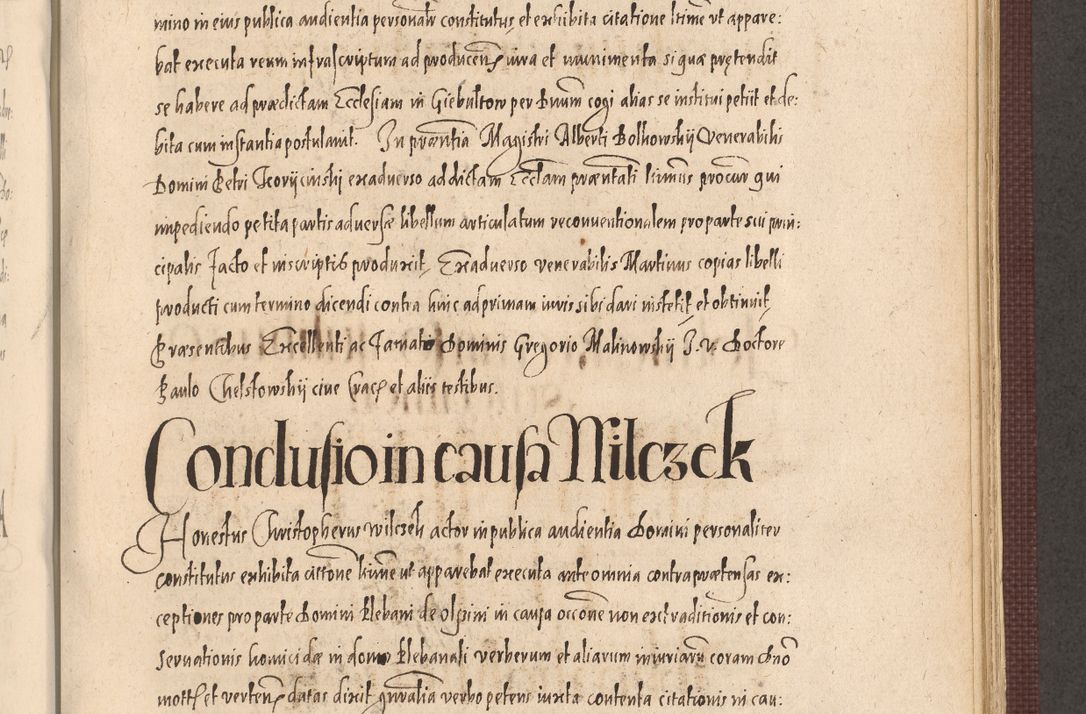 mino in eius publica audientia personalr constitutus et exhibita citatione ltime ut appare:
bat executa reum infrascriptum ad producen iura et munimenta si quæ prętendit
se habere ad prædictam Ecclesiam in Giebultow per Dnum cogi alias se institui petiit et de:
bita cum instantia postulavit. In præntia Magistri Alberti Bolkowskij Venerabilis
Domini Petri exadverso ad dictam Ecclam præntati ltimus procur qui
impediendo petita partis adversæ libellum articulatum reconventionalem pro parte sui prin:
cipalis facto et inscriptis produxit. Exadverso venerabilis Martinus copias libelli
producti cum termino dicendi contra hinc ad primam iuris sibi dari institit et obtinuit
Præsentibus Excellenti ac famato Dominis Gregorio Malinowskij J. v. Doctore
Paulo Chelstowskij cive Crac et aliis testibus.
Conclusio in causa Wilczek
Honestus Christopherus Wilczek actor in publica audientia Domini personaliter
constitutus exhibita cittone ltime ut apparebat executa ante omnia contra prætensas ex:
ceptiones pro parte Domini Plebani de Olszini in causa occone non extraditionis et con:
servationis homicidæ in domo Plebanali verberum et aliarum iniuriaru coram Dno
et verten datas dixit gnralia verbo petens iuxta contenta citationis in cau: